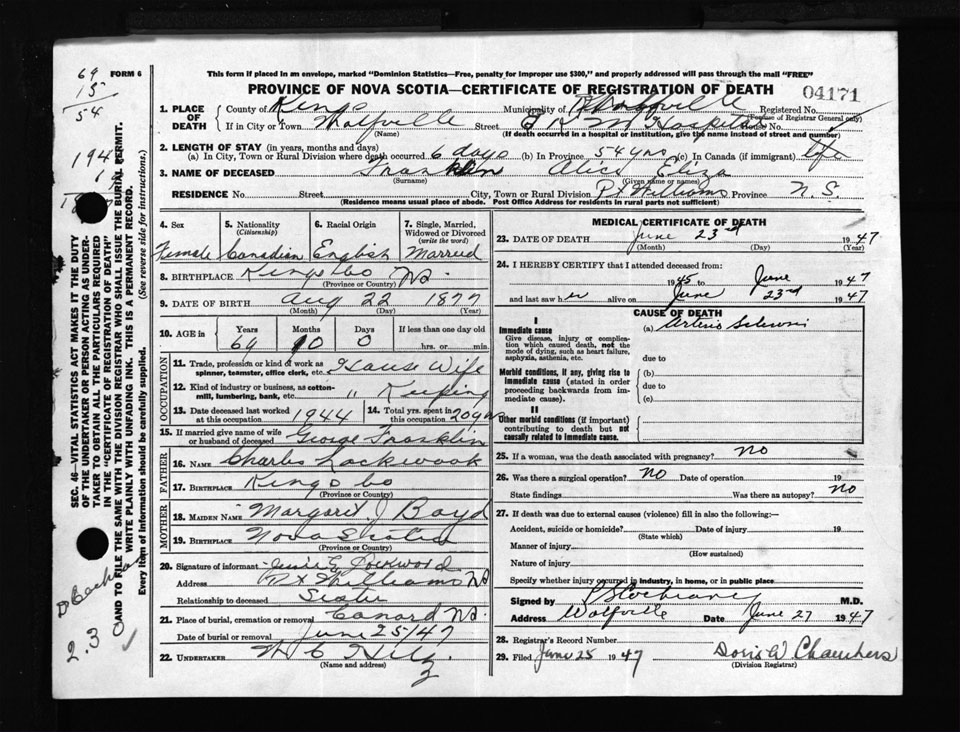 69
15
54
FORM 6
This form if placed in an envelope, marked "Dominion Statistics—Free, penalty for improper use $300," and properly addressed will pass through the mail "FREE"
PROVINCE OF NOVA SCOTIA—CERTIFICATE OF REGISTRATION OF DEATH
04171
1. PLACE OF DEATH
County of Kings Municipality of Wolfville Registered No.
(For use of Registrar General only)
If in City or Town Wolfville Street E K M Hospital House No.
(Name) (If death occurred in a hospital or institution, give its name instead of street and number)
2. LENGTH OF STAY (in years, months and days)
(a) In City, Town or Rural Division where death occurred 6 days (b) In Province 54 yrs (c) In Canada (if immigrant) life
3. NAME OF DECEASED Franklin Alice Eliza
(Surname) (Given name or names)
RESIDENCE No. Street City, Town or Rural Division Pt Williams Province N. S.
(Residence means usual place of abode. Post Office Address for residents in rural parts not sufficient)
4. Sex
Female
5. Nationality
(Citizenship)
Canadian
6. Racial Origin
English
7. Single, Married, Widowed or Divorced
(write the word)
Married
8. BIRTHPLACE Kings Co NS.
(Province or Country)
9. DATE OF BIRTH Aug 22 1877
(Month) (Day) (Year)
10. AGE in
Years Months Days If less than one day old
69 10 0 hrs. or min.
OCCUPATION
11. Trade, profession or kind of work as spinner, teamster, office clerk, etc. House Wife
12. Kind of industry or business, as cotton-mill, lumbering, bank, etc. " Keeping
13. Date deceased last worked at this occupation 1944
14. Total yrs. spent in this occupation 20 yrs
15. If married give name of wife or husband of deceased George Franklin
FATHER
16. NAME Charles Lockwood
17. BIRTHPLACE Kings Co
(Province or Country)
MOTHER
18. MAIDEN NAME Margaret J Boyd
19. BIRTHPLACE Nova Scotia
(Province or Country)
20. Signature of informant Lockwood
Address Pt Williams NS
Relationship to deceased Sister
21. Place of burial, cremation or removal Canard NS.
Date of burial or removal June 25/47
22. UNDERTAKER W C Hiltz
(Name and address)
MEDICAL CERTIFICATE OF DEATH
23. DATE OF DEATH June 23rd 1947
(Month) (Day) (Year)
24. I HEREBY CERTIFY that I attended deceased from:
1945 to June 1947
and last saw her alive on June 23rd 1947
CAUSE OF DEATH
I
Immediate cause
Give disease, injury or complication which caused death, not the mode of dying, such as heart failure, asphyxia, asthenia, etc.
(a) Arterio Sclerosis
due to
Morbid conditions, if any, giving rise to immediate cause (stated in order proceeding backwards from immediate cause).
(b)
due to
(c)
II
Other morbid conditions (if important) contributing to death but not causally related to immediate cause.
25. If a woman, was the death associated with pregnancy? No
26. Was there a surgical operation? No Date of operation 19
State findings Was there an autopsy? No
27. If death was due to external causes (violence) fill in also the following:—
Accident, suicide or homicide? Date of injury 19
(State which)
Manner of injury
(How sustained)
Nature of injury
Specify whether injury occurred in industry, in home, or in public place
Signed by Cochrane M.D.
Address Wolfville Date June 27 1947
28. Registrar's Record Number
29. Filed June 25 1947 Doris W Chambers
(Division Registrar)
SEC. 46—VITAL STATISTICS ACT MAKES IT THE DUTY
OF THE UNDERTAKER OR PERSON ACTING AS UNDER-
TAKER TO OBTAIN ALL THE PARTICULARS REQUIRED
IN THE "CERTIFICATE OF REGISTRATION OF DEATH"
AND TO FILE THE SAME WITH THE DIVISION REGISTRAR WHO SHALL ISSUE THE BURIAL PERMIT.
WRITE PLAINLY WITH UNFADING INK. THIS IS A PERMANENT RECORD.
Every item of information should be carefully supplied. (See reverse side for instructions.)
2.30